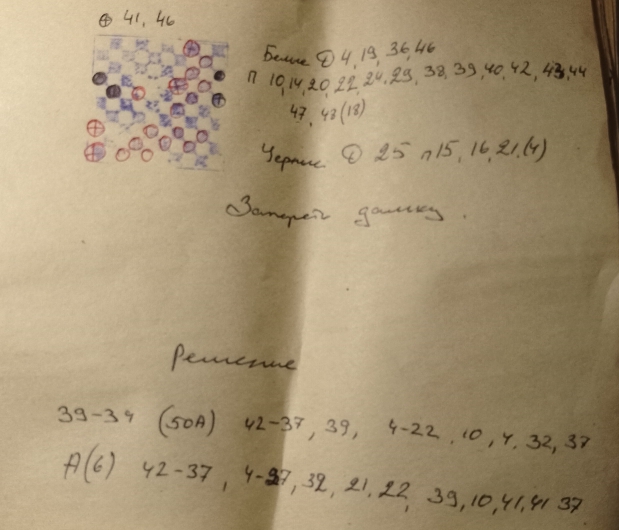 ⊕ 41, 46
Белые Д 4, 19, 36, 46
П 10, 14, 20, 22, 24, 29, 38, 39, 40, 42, 43, 44
47, 48 (18)
Черные Д 25 п 15, 16, 21 (4)
Запереть дамку.
Решение
39-34 (50А) 42-37, 39, 4-22, 10, 4, 32, 37
А(6) 42-37, 4-27, 32, 21, 22, 39, 10, 41, 41 37